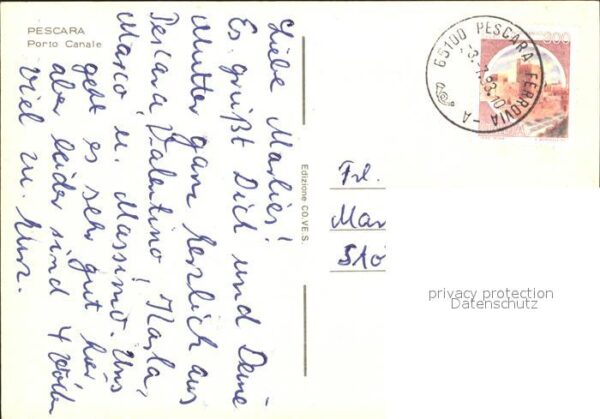 PESCARA
Porto Canale
Liebe Marlies!
Es grüßt Dich und Deine
Mutter ganz herzlich aus
Pescara Valentino, Karla,
Marco u. Massimo. Uns
geht es sehr gut hier
aber leider sind 4 Wochen
viel zu kurz.
Edizione CO.VE.S.
65100 PESCARA FERROVIA - A
300
Frl.
Mar
510
privacy protection
Datenschutz